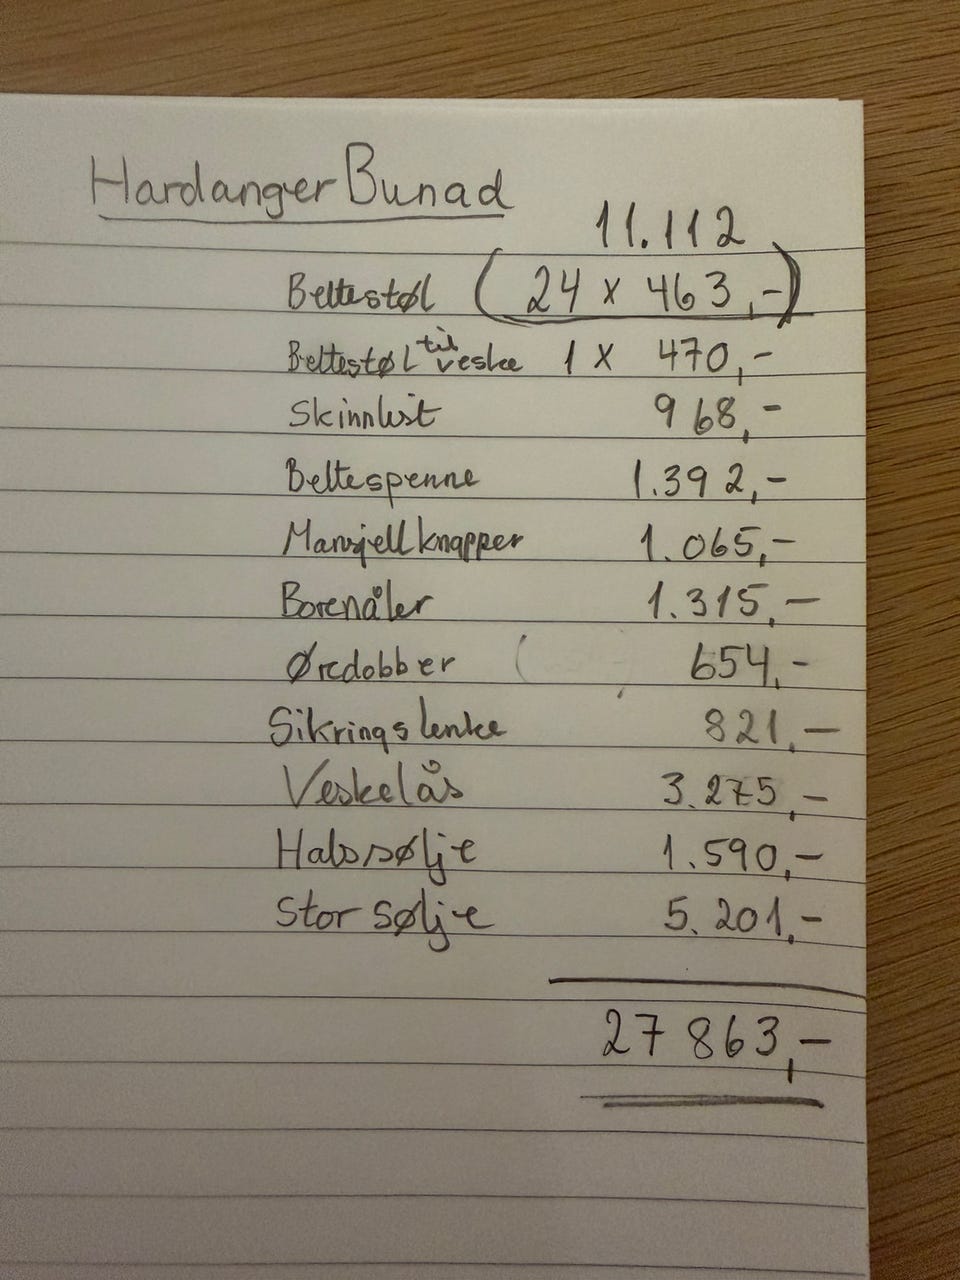 Hardanger Bunad
11.112
Beltestøl (24 x 463,-)
Beltestøl til veske 1 x 470,-
Skinnlist 968,-
Beltespenne 1.392,-
Mansjellknapper 1.065,-
Borenåler 1.315,-
Øredobber ( 654,-
Sikringslenke 821,-
Veskelås 3.275,-
Halssølje 1.590,-
Stor sølje 5.201,-
27 863,-